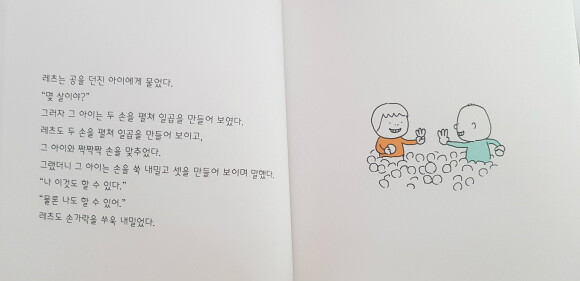 레츠는 공을 던진 아이에게 물었다.
“몇 살이야?”
그러자 그 아이는 두 손을 펼쳐 일곱을 만들어 보였다.
레츠도 두 손을 펼쳐 일곱을 만들어 보이고,
그 아이와 짝짝짝 손을 맞추었다.
그랬더니 그 아이는 손을 쑥 내밀고 셋을 만들어 보이며 말했다.
“나 이것도 할 수 있다.”
“물론 나도 할 수 있어.”
레츠도 손가락을 쑤욱 내밀었다.